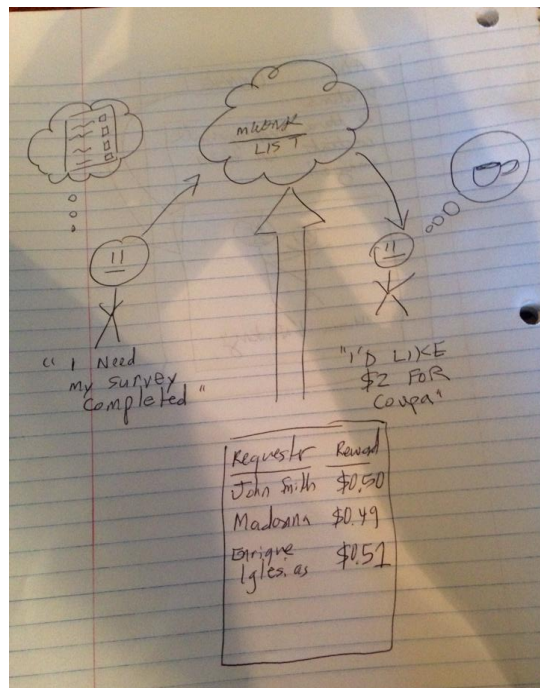 mWORK
LIST
"I Need
my survey
completed"
"I'D LIKE
$2 FOR
Coupa"
Requester Reward
John Smith $0.50
Madonna $0.49
Enrique
Iglesias $0.51